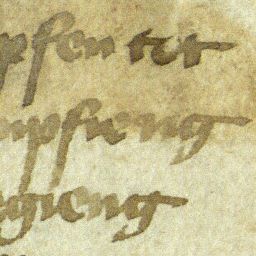 pfen tet
mpfieng
gieng